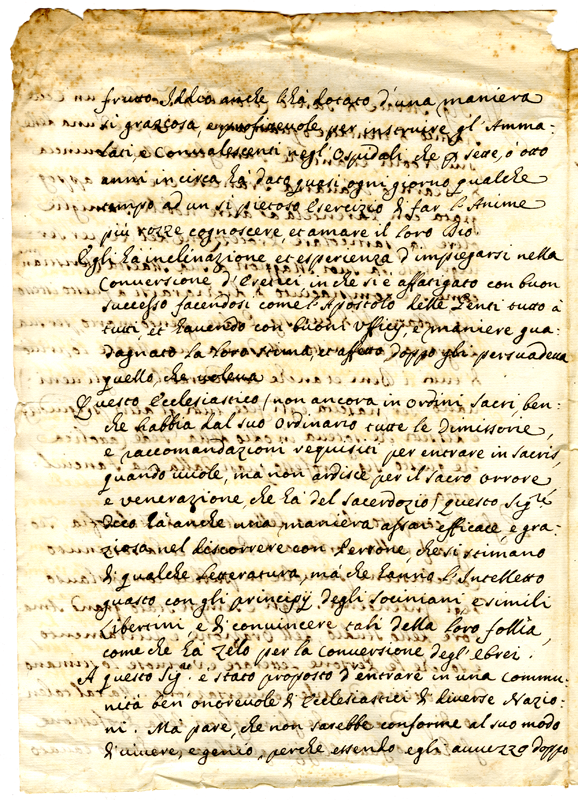 frutto. Iddio anche l'ha dotato d'una maniera
si graziosa, e profittevole per instruire gl'Amma-
lati, e Convalescenti negl'Ospidali, che p sette, ò otto
anni in circa ha dato quasi ogni giorno qualche
tempo ad un si pietoso Esercizio di far l'Anime
più rozze cognoscere, et amare il loro Dio
Egli ha inclinazione et esperienza d'impiegarsi nella
Conversione d'Eretici in che si e affatigato con buon
successo facendosi come l'Apostolo delle Genti tutto à
tutti, et havendo con buoni Ufficij e maniere gua-
dagnato la loro stima, et affetto doppo gli persuadeva
quello che voleva
Questo Ecclesiastico (non ancora in ordini Sacri, ben-
che habbia dal suo Ordinario tutte le dimissorie,
e raccomandazioni requisiti per entrare in Sacris,
quando vuole, ma non ardisce per il sacro orrore
e venerazione, che ha del Sacerdozio) questo Sigre
dico ha anche una maniera assai efficace, e gra-
ziosa nel discorrere con Persone, che si stimano
di qualche letteratura, ma che hanno l'Intelletto
guasto con gli principij degli Sociniani, e simili
libertini, e di convincere tali della loro follia,
come che ha zelo per la conversione degl'ebrei.
A questo Sigre e stato proposto d'entrare in una Commu-
nità ben onorevole di Ecclesiastici di diverse Nazio-
ni. Ma pare, che non sarebbe conforme al suo modo
di vivere, e genio, perche essendo egli avvezzo doppo